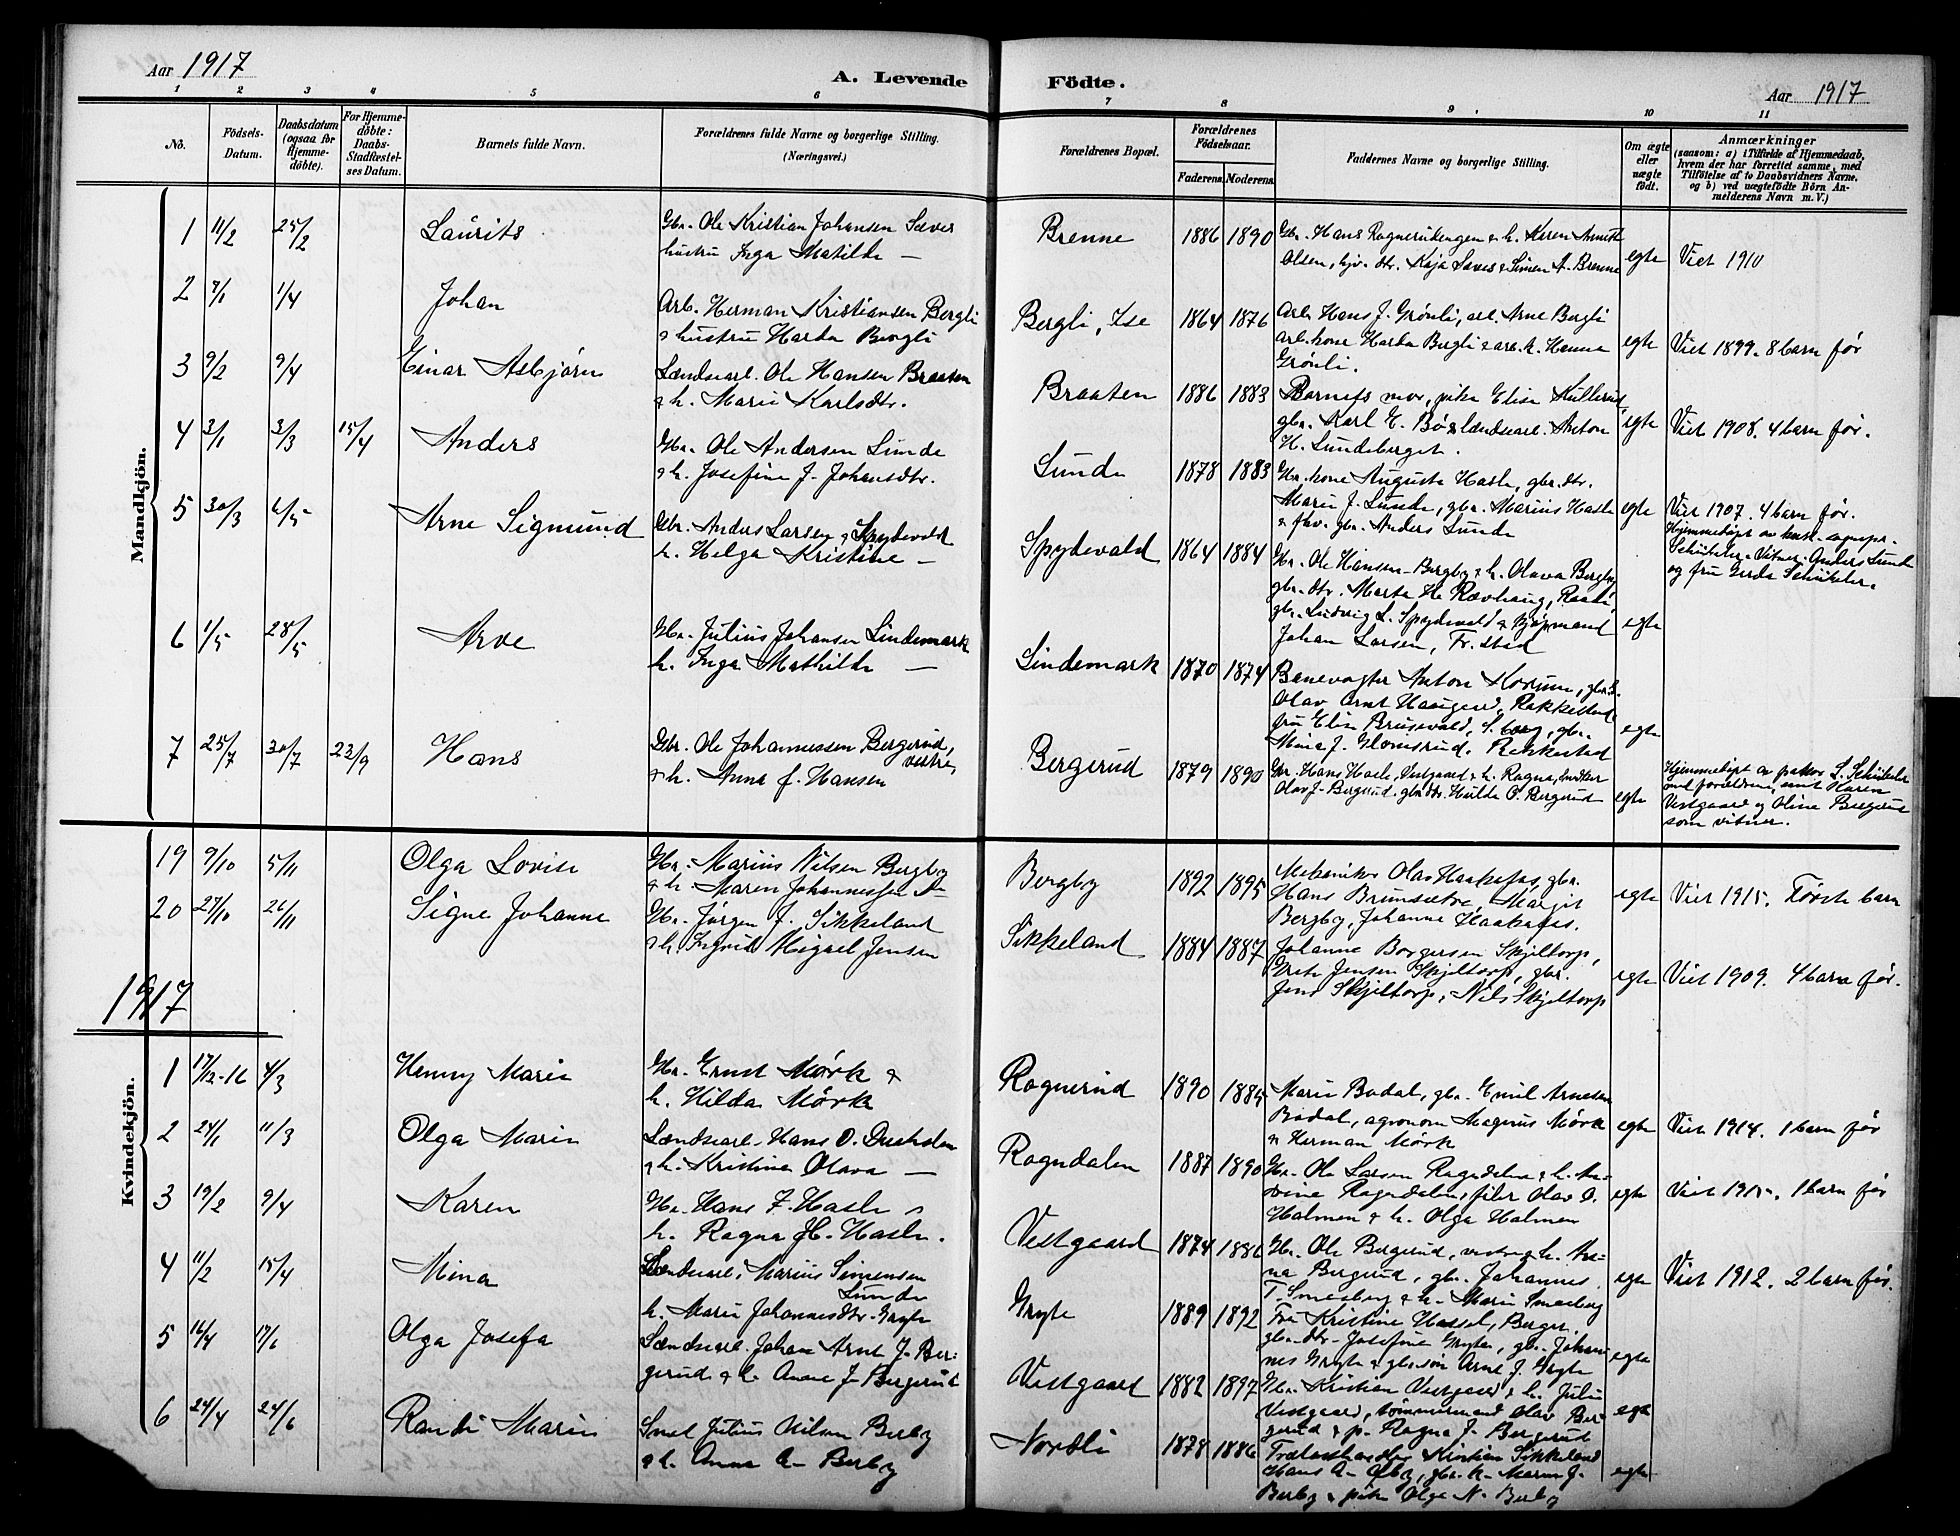 Aar 1917
A. Levende Födte.
Aar 1917
1 2 3 4 5 6 7 8 9 10 11
No.
Födsels-Datum.
Daabsdatum (ogsaa for Hjemme-döbte).
For Hjemme-döbte: Daabs-Stadfæstel-ses Datum.
Barnets fulde Navn.
Forældrenes fulde Navne og borgerlige Stilling. (Næringsvei.)
Forældrenes Bopæl.
Forældrenes Födselsaar.
Faderens. Moderens.
Faddernes Navne og borgerlige Stilling.
Om ægte eller uægte födt.
Anmærkninger
(saasom: a) i Tilfælde af Hjemmedaab, hvem der har forrettet samme, med Tilföielse af to Daabsvidners Navne, og b) ved uægtefödte Börn An-melderens Navn m. V.)
Mandkjön.
1 11/2 25/2 Laurits
Gbr. Ole Kristian Johansen Saves
hustru Inga Matilde —
Brenne 1886 1890
Gbr. Hans Ragnerudengen & h. Karen
Olsen, gbr. dtr. Kaja Saves & Simen A. Brenne
egte Viet 1910
2 7/1 1/4 Johan
Arb. Herman Kristiansen Bergli
& hustru Harda Bergli
Bergli, Ise 1864 1876
Arb. Hans J. Grönli, arb. Arne Bergli
arb. kone Harda Bergli & arb. h. Hanna
Grönli.
egte Viet 1899. 8 barn før
3 9/2 9/4 Einar Asbjørn
Landsearb. Ole Hansen Braaten
& h. Marie Karlsdtr.
Braaten 1886 1883
Barnets mor, pike Elise Kullerud,
gbr. Karl E. Bøe & landsearb. Anton
H. Lundeberget.
egte Viet 1908. 4 barn før.
4 3/1 3/3 15/4 Anders
Gbr. Ole Andersen Lunde
& h. Josefine J. Johansdtr.
Lunde 1878 1883
Gbr. kone Augusta Hasle, gbr. dtr.
Marie J. Lunde, gbr. Marius Hasle
& fhv. gbr. Anders Lunde
egte Viet 1907. 4 barn før.
Hjemmedøpt av sognepr.
Schübeler. Vitner: Anders Lunde
og fru Gerda Schübeler.
5 30/3 6/5 Arne Sigmund
Gbr. Anders Larsen Spydevold &
h. Helga Kristine —
Spydevald 1864 1884
Gbr. Ole Hansen Bergby & h. Olava Bergby
gbr. dtr. Marta H. Rævhaug, Raade,
gbr. Ludvig L. Spydevald & kjøpmand
Johan Larsen, Fr. stad
egte
6 1/5 28/5 Arve
Gbr. Julius Johansen Lindemark
h. Inga Mathilde —
Lindemark 1870 1874
Banevogter Anton Korsum, gbr. s.
Olav Arnt Haugerud, Rakkestad
fru Elise Brusevold, S. borg, gbr.
Mina J. Glomsrud, Rakkestad
egte
7 25/7 30/7 23/9 Hans
Gbr. Ole Johannessen Bergerud,
vestre,
& h. Anna f. Hansen
Bergerud 1879 1890
Gbr. Hans Hasle, Vestgaard & h. Ragna, snedker
Olav J. Bergerud, gbr. dtr. Hulda O. Bergerud
egte
Hjemmedøpt av pastor L. Schübeler
med forældrene samt Karen
Vestgaard og Oline Bergerud
som vitner.
19 9/10 5/11 Olga Lovise
Gbr. Marius Nilsen Bergby
& h. Maren Johannesen
Bergby 1892 1895
Mekaniker Olav Haakaas, gbr.
Hans Brunsætre, Margit
Bergby, Johanne Haakaas.
egte Viet 1915. Første barn
20 27/10 26/11 Signe Johanne
Gbr. Jørgen J. Sikkeland
& h. Ingrid Jensen
Sikkeland 1884 1887
Johanne Borgersen Skjeltorp,
Grete Jensen Skjeltorp, gbr.
Jens Skjeltorp, Nils Skjeltorp
egte Viet 1909. 4 barn før.
1917
Kvindekjön.
1 17/12-16 4/3 Henny Marie
Gbr. Ernst Mørk &
h. Hilda Mørk
Ragnerud 1890 1885
Marie Bodal, gbr. Emil Arnesen
Bodal, agronom Magnus Mørk
& Herman Mørk
egte Viet 1914. 1 barn før
2 24/1 11/3 Olga Marie
Landsearb. Hans O.
& h. Kristine Olava —
Ragndalen 1887 1890
Gbr. Ole Larsen Ragndalen & h.
Ragndalen, Olav O.
Holmen & h. Olga Holmen
egte Viet 1915. 1 barn før
3 19/2 9/4 Karen
Gbr. Hans F. Hasle &
h. Ragna H. Hasle.
Vestgaard 1874 1886
Gbr. Ole Bergerud, vestre & h. An-
na Bergerud, gbr. Johannes
T. Smesberg & h. Marie Smesberg
egte Viet 1912. 2 barn før.
4 11/2 15/4 Mina
Landsearb. Marius Simensen
Lunde
h. Marie Johannesdtr. Gryte
Gryte 1889 1892
Fru Kristine Hassel, Berger,
gbr. dtr. Josefine Gryte, gbr. Johan-
nes Gryte & gbr. søn Arne J. Gryte
egte
5 16/4 17/6 Olga Josefa
Landsearb. Johan Arnt J. Ber-
gerud & h. Anna J. Bergerud
Vestgaard 1882 1897
Gbr. Kristian Vestgaard & h. Julie
Vestgaard, tømmermand Olav Ber-
gerud & p. Ragna J. Bergerud
egte
6 24/4 24/6 Randi Marie
Smed Julius Nilsen Berby
& h. Anna A. Berby
Nordli 1878 1886
Trælasthandler Kristian Sikkeland
Hans A. Opby, gbr. k. Maren J.
Berby & pike Olga N. Berby
egte